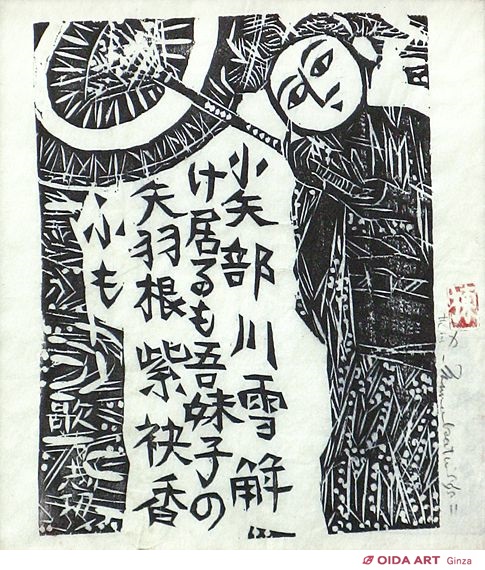 小矢部川雪解
け居るも吾妹子の
矢羽根紫袂香
ふも
歌
OIDA ART Ginza